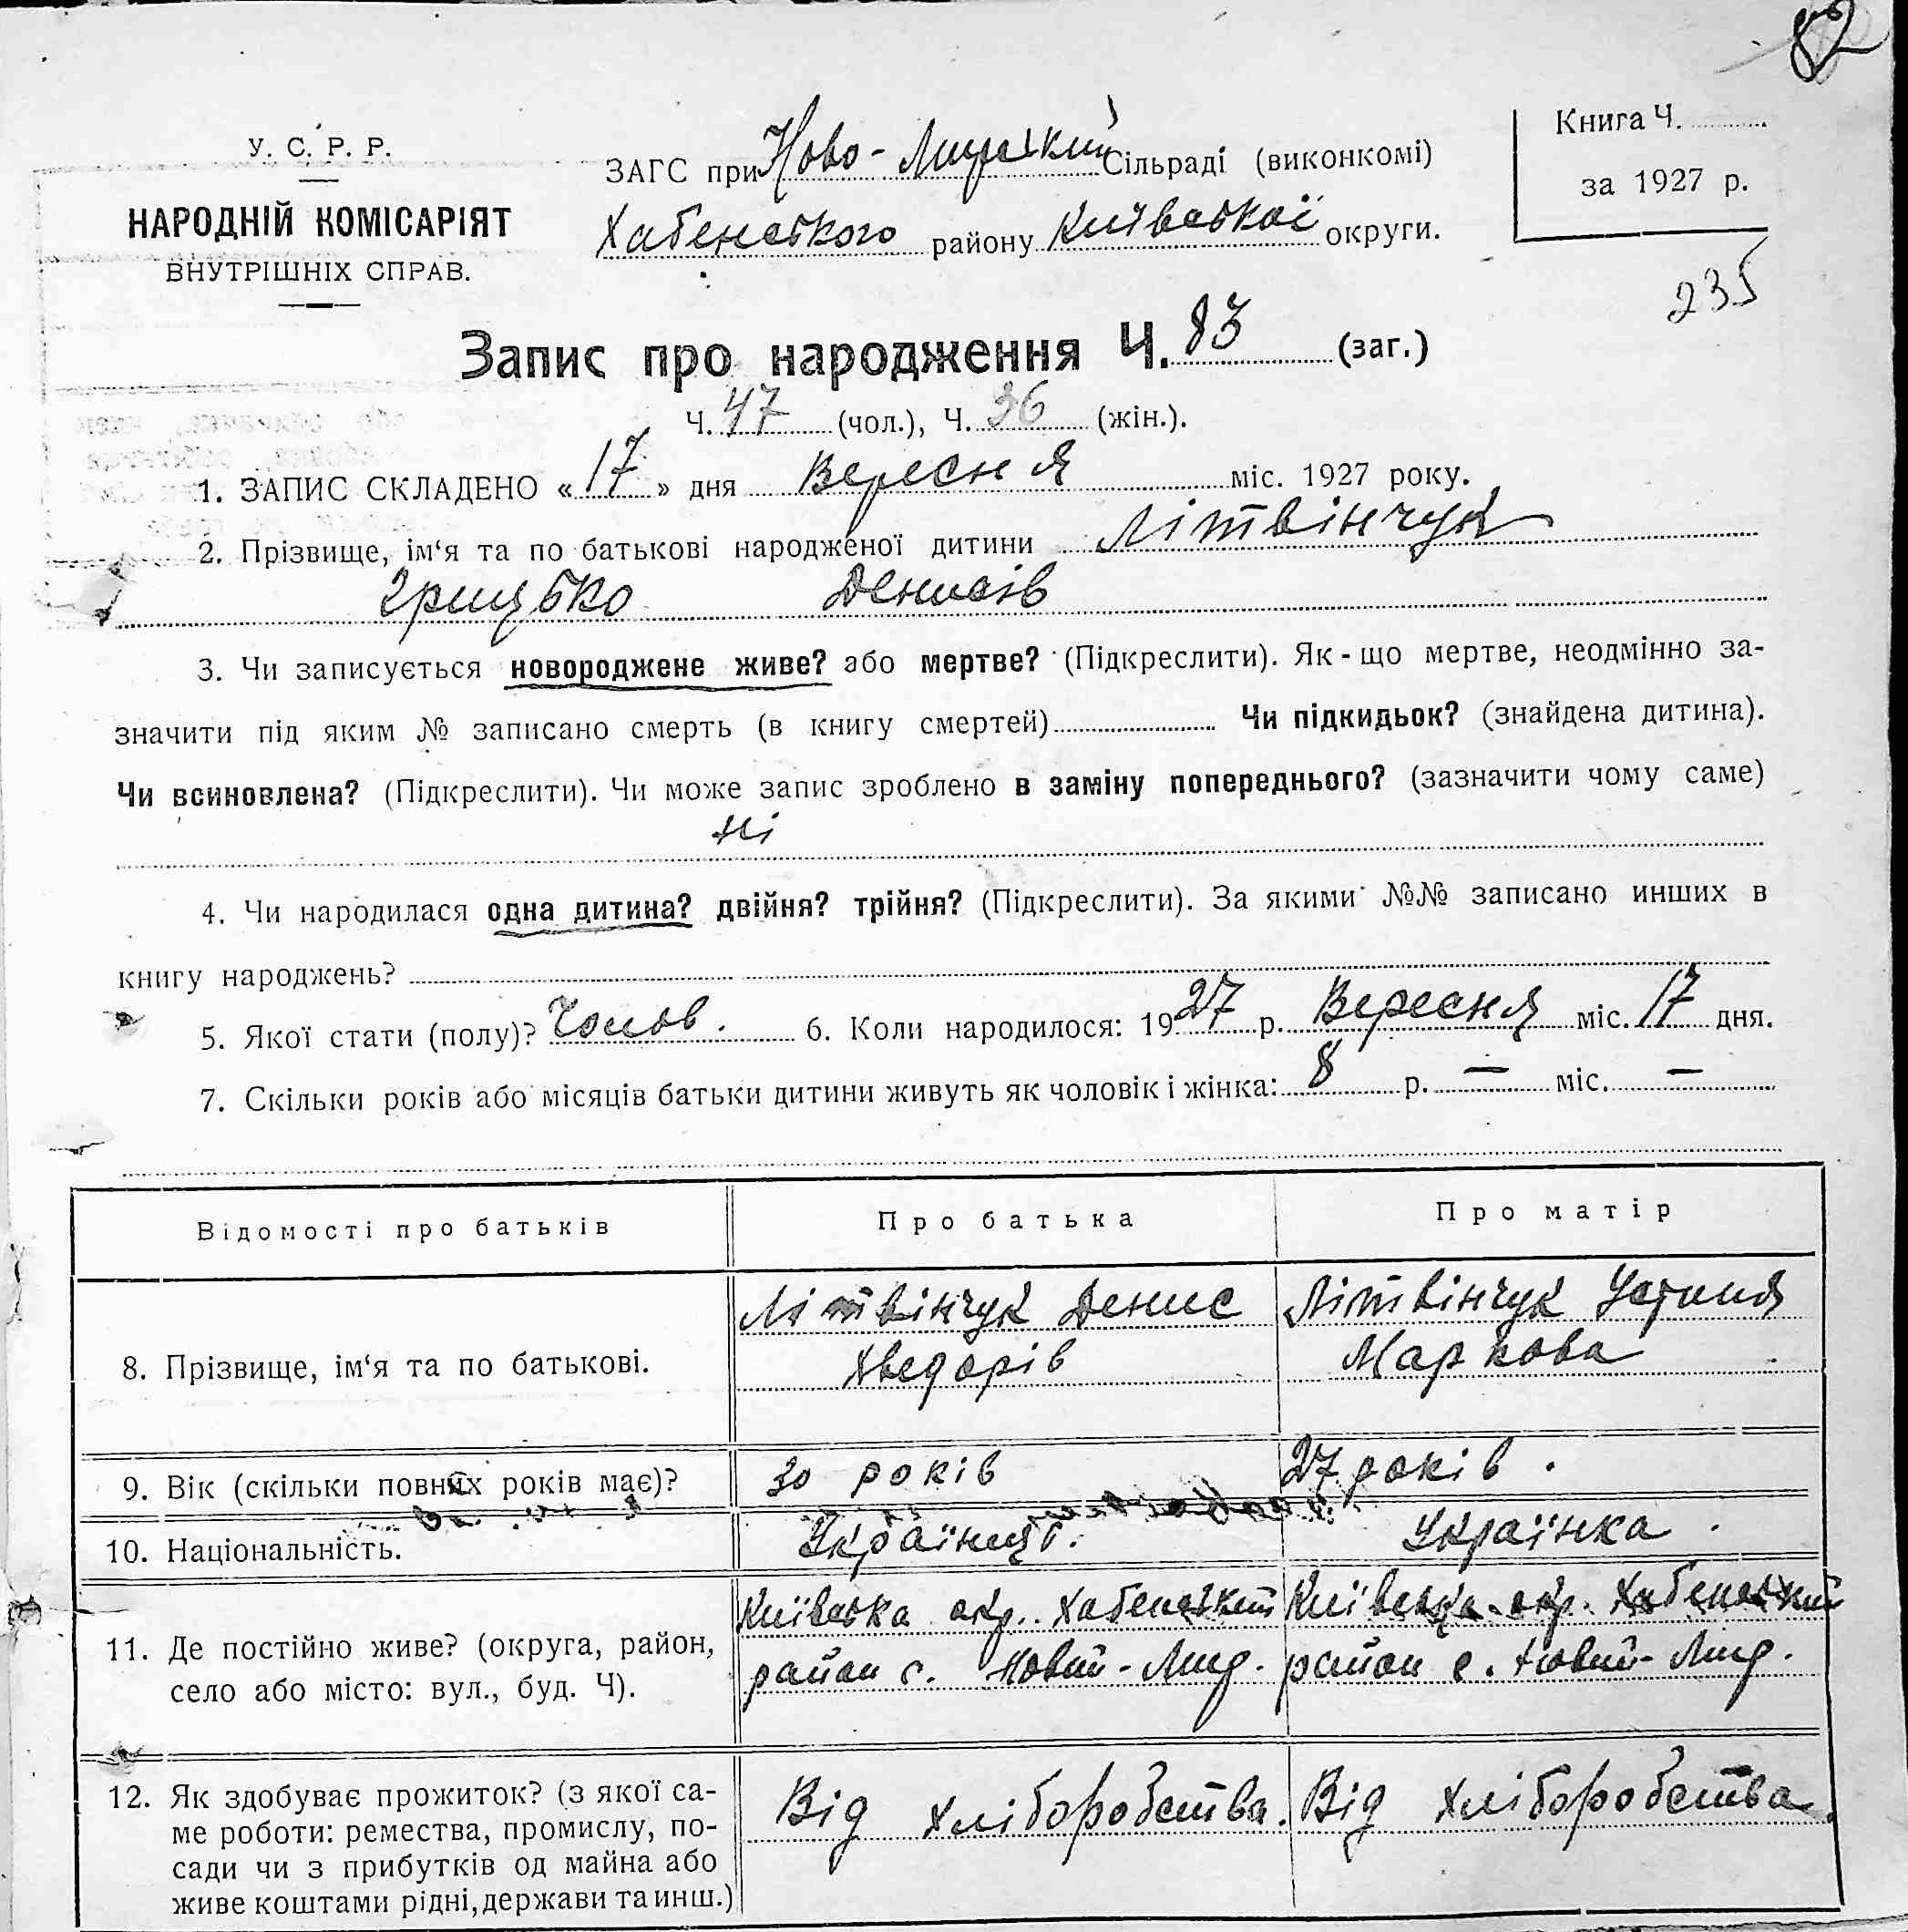 82
У. С. Р. Р.
НАРОДНІЙ КОМІСАРІЯТ
ВНУТРІШНІХ СПРАВ.
ЗАГС при Ново-Мирский Сільраді (виконкомі)
Хабенського району Київської округи.
Книга Ч.
за 1927 р.
235
Запис про народження Ч. 83 (заг.)
Ч. 47 (чол.), Ч. 36 (жін.).
1. ЗАПИС СКЛАДЕНО «17» дня Вересня міс. 1927 року.
2. Прізвище, ім‘я та по батькові народженої дитини Літвінчук
Грицько Денисів
3. Чи записується новороджене живе? або мертве? (Підкреслити). Як-що мертве, неодмінно за-
значити під яким № записано смерть (в книгу смертей) Чи підкидьок? (знайдена дитина).
Чи всиновлена? (Підкреслити). Чи може запис зроблено в заміну попереднього? (зазначити чому саме)
ні
4. Чи народилася одна дитина? двійня? трійня? (Підкреслити). За якими №№ записано инших в
книгу народжень?
5. Якої стати (полу)? Чолов. 6. Коли народилося: 1927 р. Вересня міс. 17 дня.
7. Скільки років або місяців батьки дитини живуть як чоловік і жінка: 8 р. — міс. —
Відомості про батьків Про батька Про матір
8. Прізвище, ім‘я та по батькові.
Літвінчук Денис
Хведорів
Літвінчук Устиня
Маркова
9. Вік (скільки повних років має)? 30 років 27 років.
10. Національність. Українці. Українка.
11. Де постійно живе? (округа, район,
село або місто: вул., буд. Ч).
Київська окр. Хабенський
район с. Новий-Мир.
Київська окр. Хабенський
район с. Новий-Мир.
12. Як здобуває прожиток? (з якої са-
ме роботи: ремества, промислу, по-
сади чи з прибутків од майна або
живе коштами рідні, держави та инш.)
Від хліборобства.
Від хліборобства.